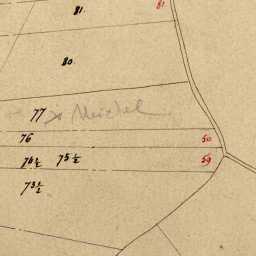 81. 81
80.
77
76 50
76½ 75½ 59
73½